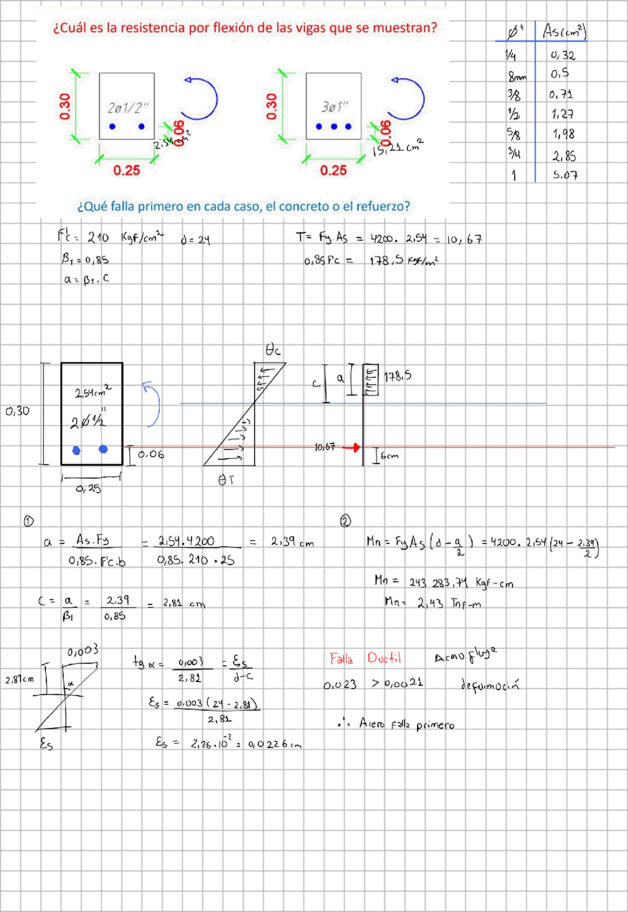 ¿Cuál es la resistencia por flexión de las vigas que se muestran?
∅" As(cm²)
1/4 0,32
8mm 0,5
3/8 0,71
1/2 1,27
5/8 1,98
3/4 2,85
1 5.07
0.30 2ø1/2" 0.06 2.54cm² 0.25
0.30 3ø1" 0.06 15,21 cm² 0.25
¿Qué falla primero en cada caso, el concreto o el refuerzo?
F'c = 210 Kgf/cm² d = 24
β1 = 0,85
a = β1 . C
T = Fy As = 4200. 2,54 = 10,67
0,85 F'c = 178,5 Kgf/m²
0,30 2,54cm² 2∅1/2" 0,06 0,25
θc
θT
c a 178,5
10,67 6cm
①
a = As.Fy / 0,85.F'c.b = 2,54.4200 / 0,85.210.25 = 2,39 cm
C = a / β1 = 2.39 / 0,85 = 2,81 cm
②
Mn = Fy As (d - a/2) = 4200. 2,54 (24 - 2.39/2)
Mn = 243 283,74 Kgf-cm
Mn = 2,43 Tnf-m
0,003
2,81cm α
Ɛs
tg α = 0,003 / 2,81 = Ɛs / d-c
Ɛs = 0.003 (24 - 2,81) / 2,81
Ɛs = 2,26.10⁻² = 0,0226 cm
Falla Ductil Acero fluye
0,023 > 0,0021 deformación
∴ Acero falla primero